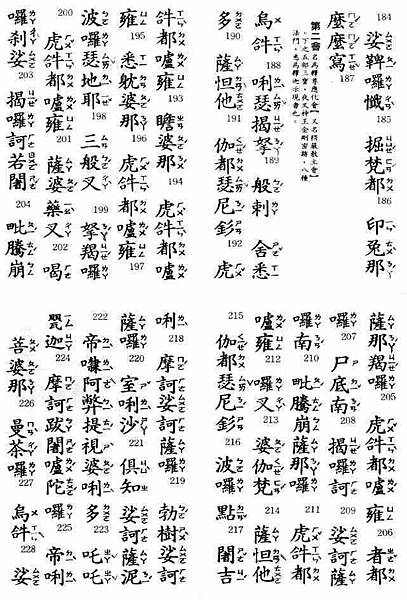 184 娑鞞囉懺 185 掘梵都 186 印兔那
麼麼寫 187
第二會 名為釋尊應化會【又名楞嚴教主會】
下之五部三寶，夜叉神王金剛密跡，八種
法門，悉為釋迦示現者也。
烏𤙖 188 唎瑟揭拏 189 般剌舍悉
多 190 薩怛他 191 伽都瑟尼釤 192 虎
𤙖都嚧雍 193 瞻婆那 194 虎𤙖都嚧
雍 195 悉耽婆那 196 虎𤙖都嚧雍 197
波囉瑟地耶 198 三般叉 199 拏羯囉
200 虎𤙖都嚧雍 201 薩婆藥叉 202 喝
囉剎娑 203 揭囉訶若闍 204 毗騰崩
薩那羯囉 205 虎𤙖都嚧雍 206 者都
囉 207 尸底南 208 揭囉訶 209 娑訶薩
囉南 210 毗騰崩薩那囉 211 虎𤙖都
嚧雍 212 囉叉 213 婆伽梵 214 薩怛他
215 伽都瑟尼釤 216 波囉點 217 闍吉
唎 218 摩訶娑訶薩囉 219 勃樹娑訶
薩囉 220 室唎沙 221 俱知娑訶薩泥
帝㘑 222 阿弊提視婆唎多 223 吒吒
甖迦 224 摩訶跋闍嚧陀囉 225 帝唎
菩婆那 226 曼茶囉 227 烏𤙖 228 娑